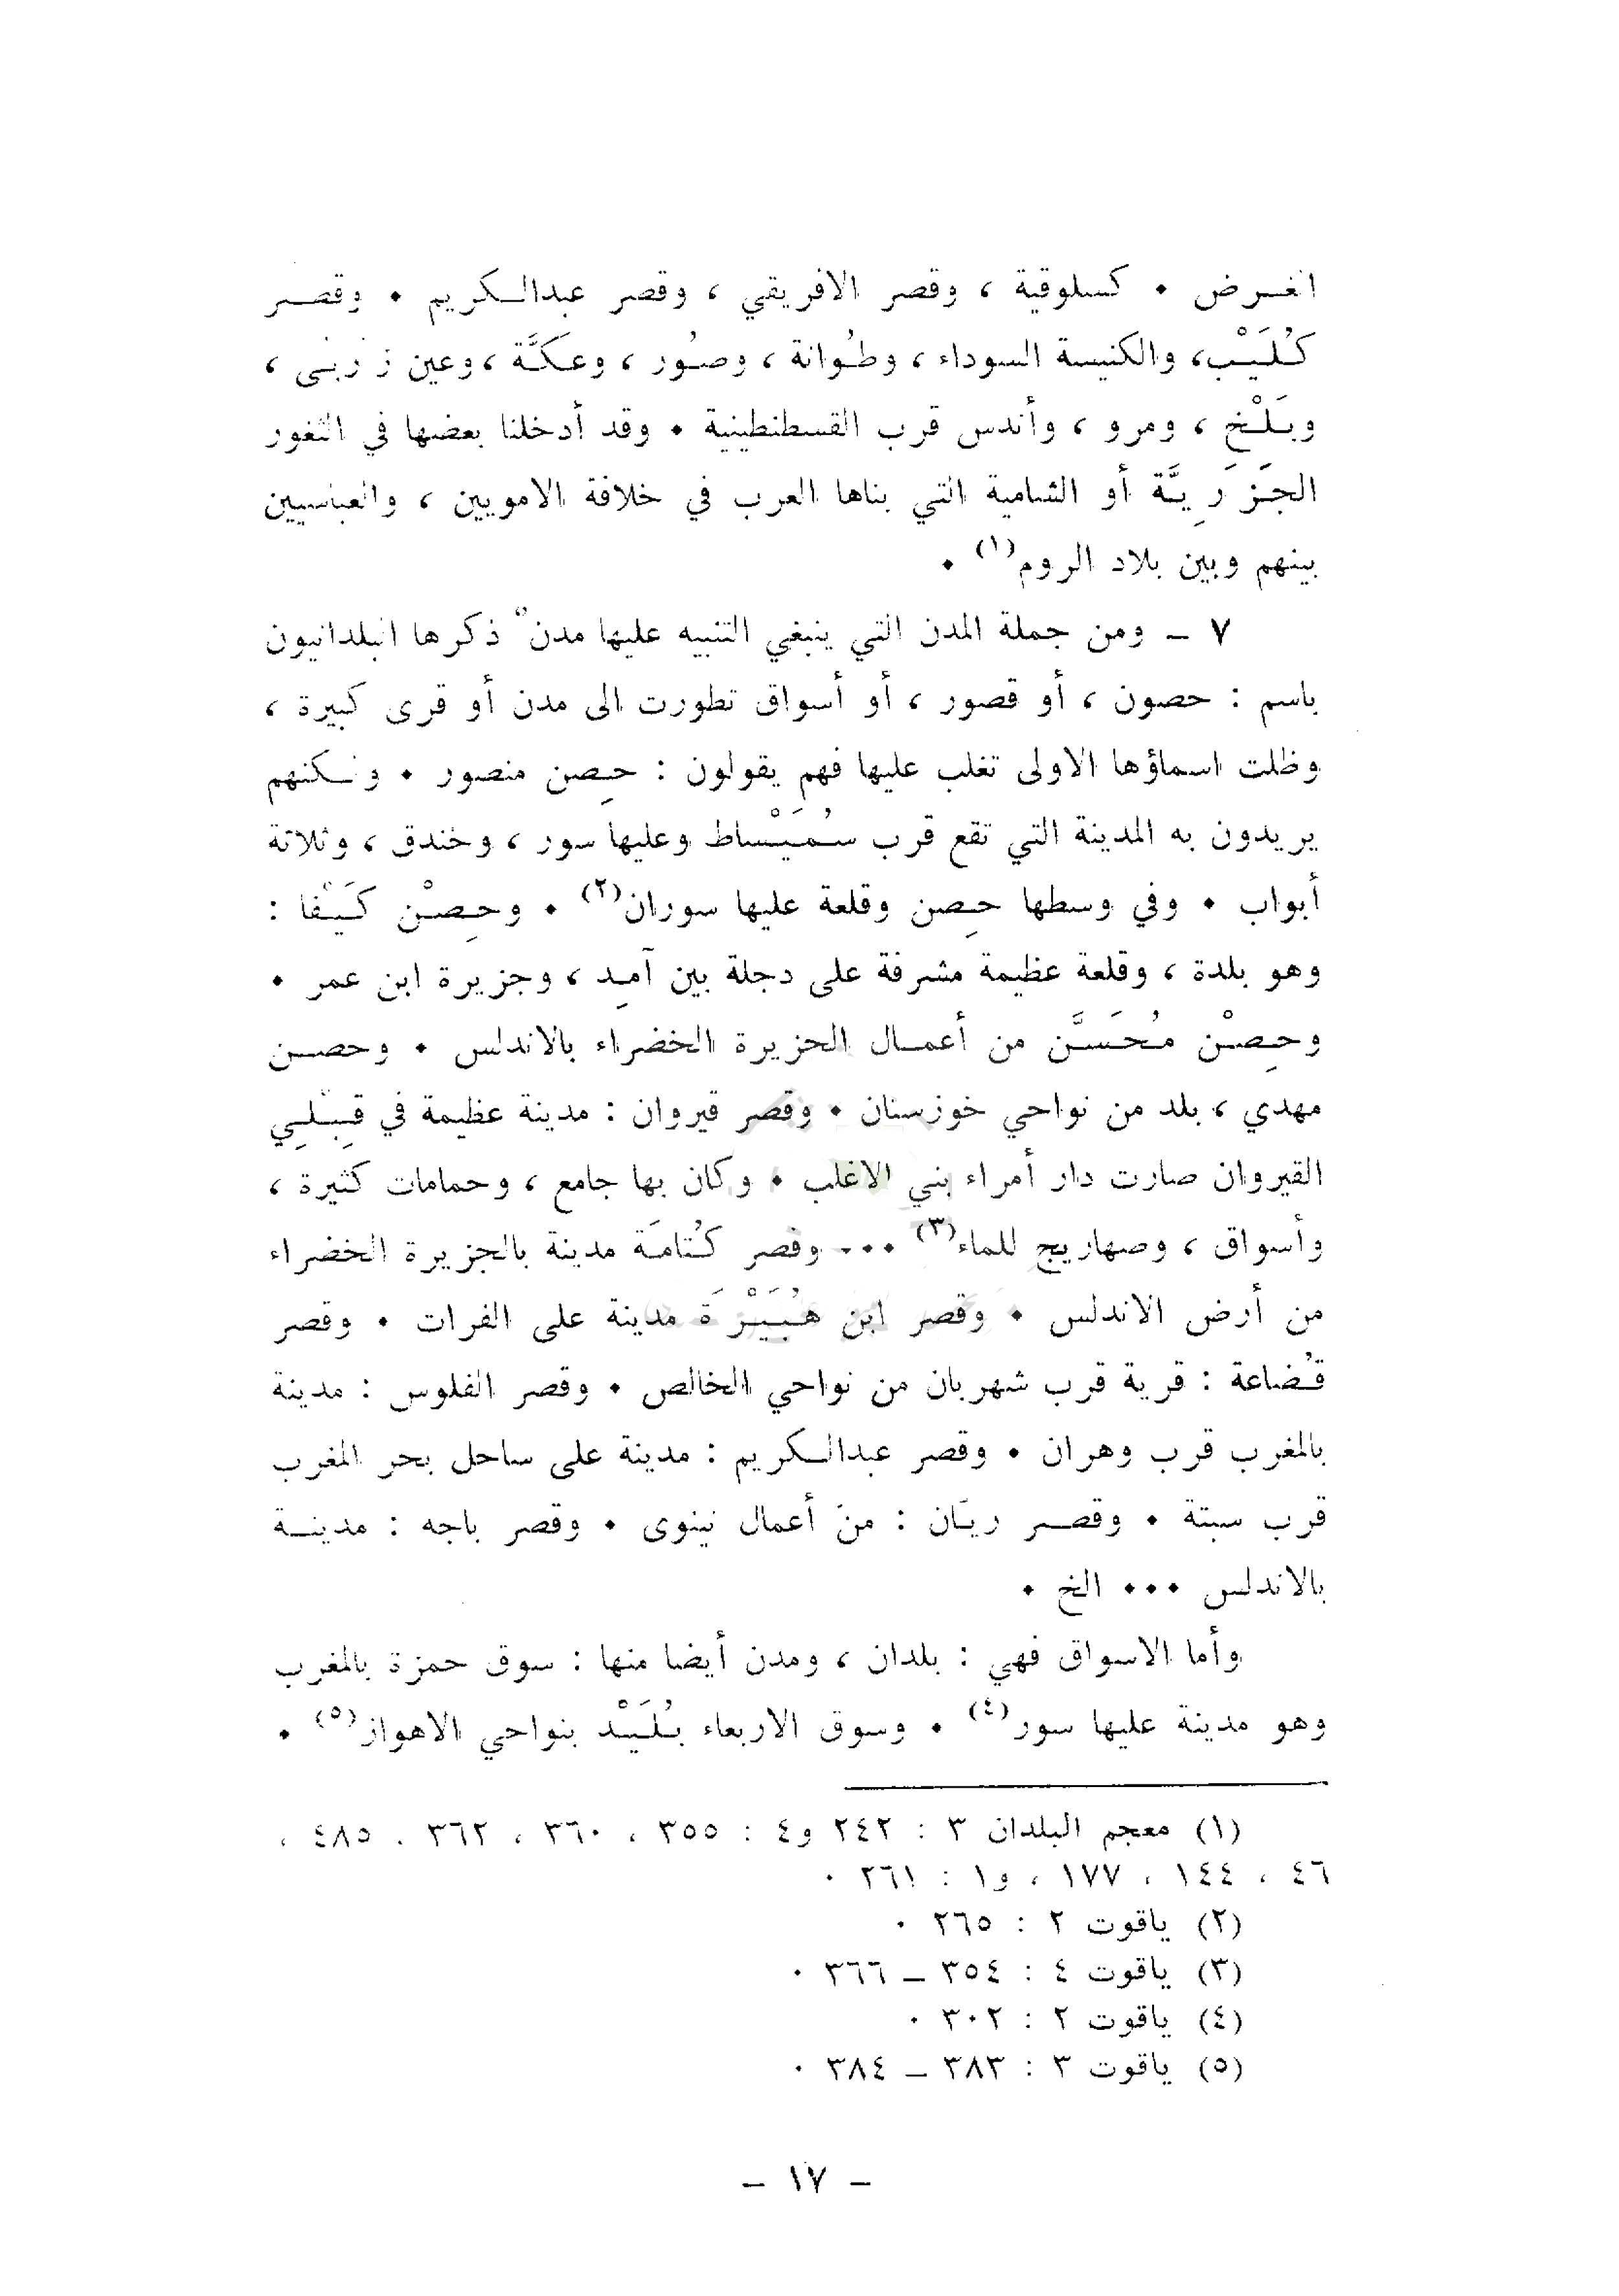 الغـرض . كسلوقية ، وقصر الافريقي ، وقصر عبدالـكريم . وقصـر
كُلَيْب، والكنيسة السوداء ، وطُوانة ، وصُور ، وعكَّة ، وعين زربى ،
وبَلْخ ، ومرو ، وأندس قرب القسطنطينية . وقد أدخلنا بعضها في الثغور
الجَزَرِيَّة أو الشامية التي بناها العرب في خلافة الامويين ، والعباسيين
بينهم وبين بلاد الروم(١) .
٧ ـ ومن جملة المدن التي ينبغي التنبيه عليها مدنٌ ذكرها البلدانيون
باسم : حصون ، أو قصور ، أو أسواق تطورت الى مدن أو قرى كبيرة ،
وظلت اسماؤها الاولى تغلب عليها فهم يقولون : حِصن منصور . ولـكنهم
يريدون به المدينة التي تقع قرب سُمَيْساط وعليها سور ، وخندق ، وثلاثة
أبواب . وفي وسطها حِصن وقلعة عليها سوران(٢) . وحِصْن كَيْفا :
وهو بلدة ، وقلعة عظيمة مشرفة على دجلة بين آمِد ، وجزيرة ابن عمر .
وحِصْن مُحَسَّن من أعمـال الجزيرة الخضراء بالاندلس . وحصـن
مهدي ، بلد من نواحي خوزستان . وقصر قيروان : مدينة عظيمة في قِبْلِي
القيروان صارت دار أمراء بني الاغلب . وكان بها جامع ، وحمامات كثيرة ،
وأسواق ، وصهاريج للماء(٣) ... وقصر كُتامَة مدينة بالجزيرة الخضراء
من أرض الاندلس . وقصر ابن هُبَيْرَة مدينة على الفرات . وقصر
قُضاعة : قرية قرب شهربان من نواحي الخالص . وقصر الفلوس : مدينة
بالمغرب قرب وهران . وقصر عبدالـكريم : مدينة على ساحل بحر المغرب
قرب سبتة . وقصـر ريَّان : من أعمال نينوى . وقصر باجه : مدينـة
بالاندلس ... الخ .
وأما الاسواق فهي : بلدان ، ومدن أيضا منها : سوق حمزة بالمغرب
وهو مدينة عليها سور(٤) . وسوق الاربعاء بُلَيْد بنواحي الاهواز(٥) .
(١) معجم البلدان ٣ : ٢٤٢ و٤ : ٣٥٥ ، ٣٦٠ ، ٣٦٢ ، ٤٨٥ ،
٤٦ ، ١٤٤ ، ١٧٧ ، و١ : ٢٦١ .
(٢) ياقوت ٢ : ٢٦٥ .
(٣) ياقوت ٤ : ٣٥٤ ـ ٣٦٦ .
(٤) ياقوت ٢ : ٣٠٢ .
(٥) ياقوت ٣ : ٣٨٣ ـ ٣٨٤ .
ـ ١٧ ـ